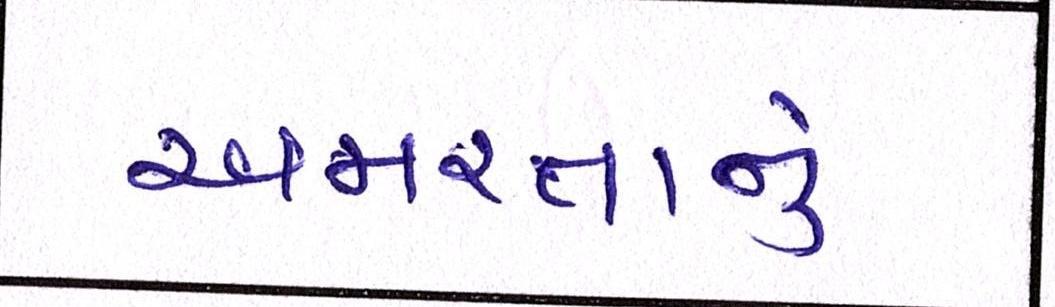 અમરતાનું